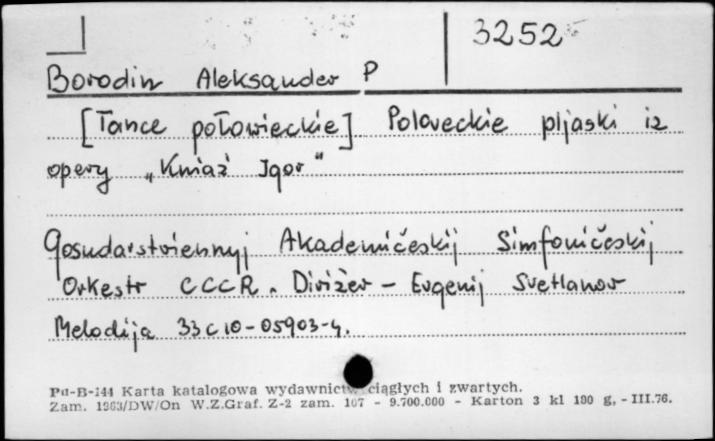 3252
Borodin Aleksander P
[Tance połowieckie] Poloveckie pljaski iz
opery „Kniaź Igor"
Gosudarstviennyj Akademičeskij Simfoničeskij
Orkestr CCCR. Dirižer - Evgenij Svetlanov
Melodija 33C10-05903-4.
Pu-B-144 Karta katalogowa wydawnictw ciągłych i zwartych.
Zam. 1963/DW/On W.Z.Graf. Z-2 zam. 107 - 9.700.000 - Karton 3 kl 190 g, - III.76.